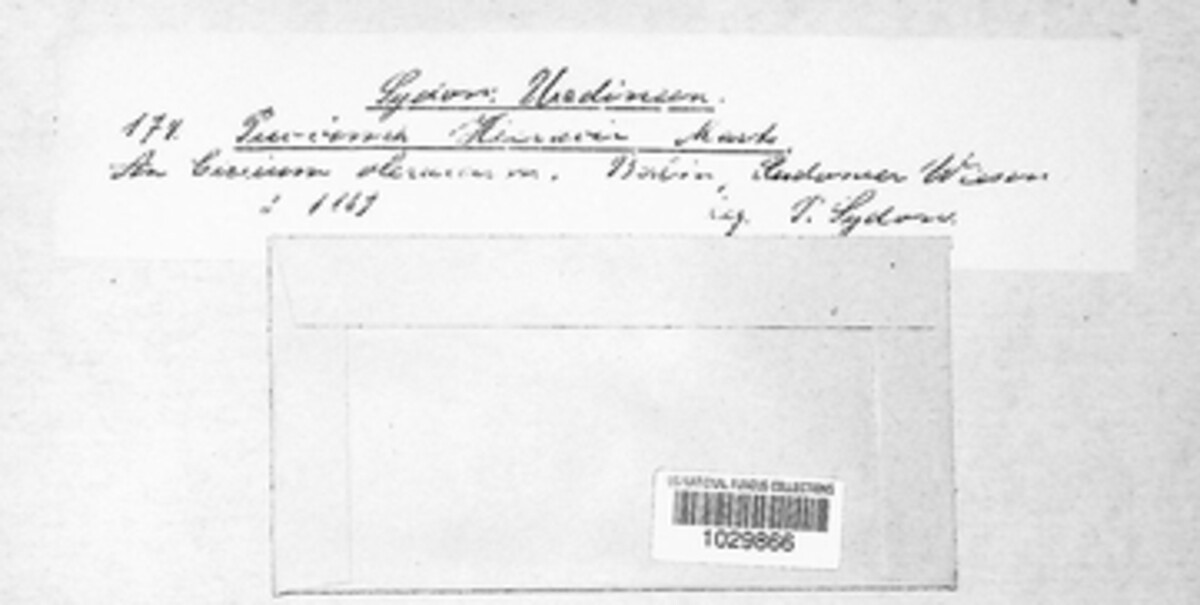 Sydow. Uredineen.
174. Puccinia Hieracii Mart.
An Cirsium oleraceum. Berlin, Rudower Wiesen
leg. P. Sydow.
US NATIONAL FUNGUS COLLECTIONS
1029866